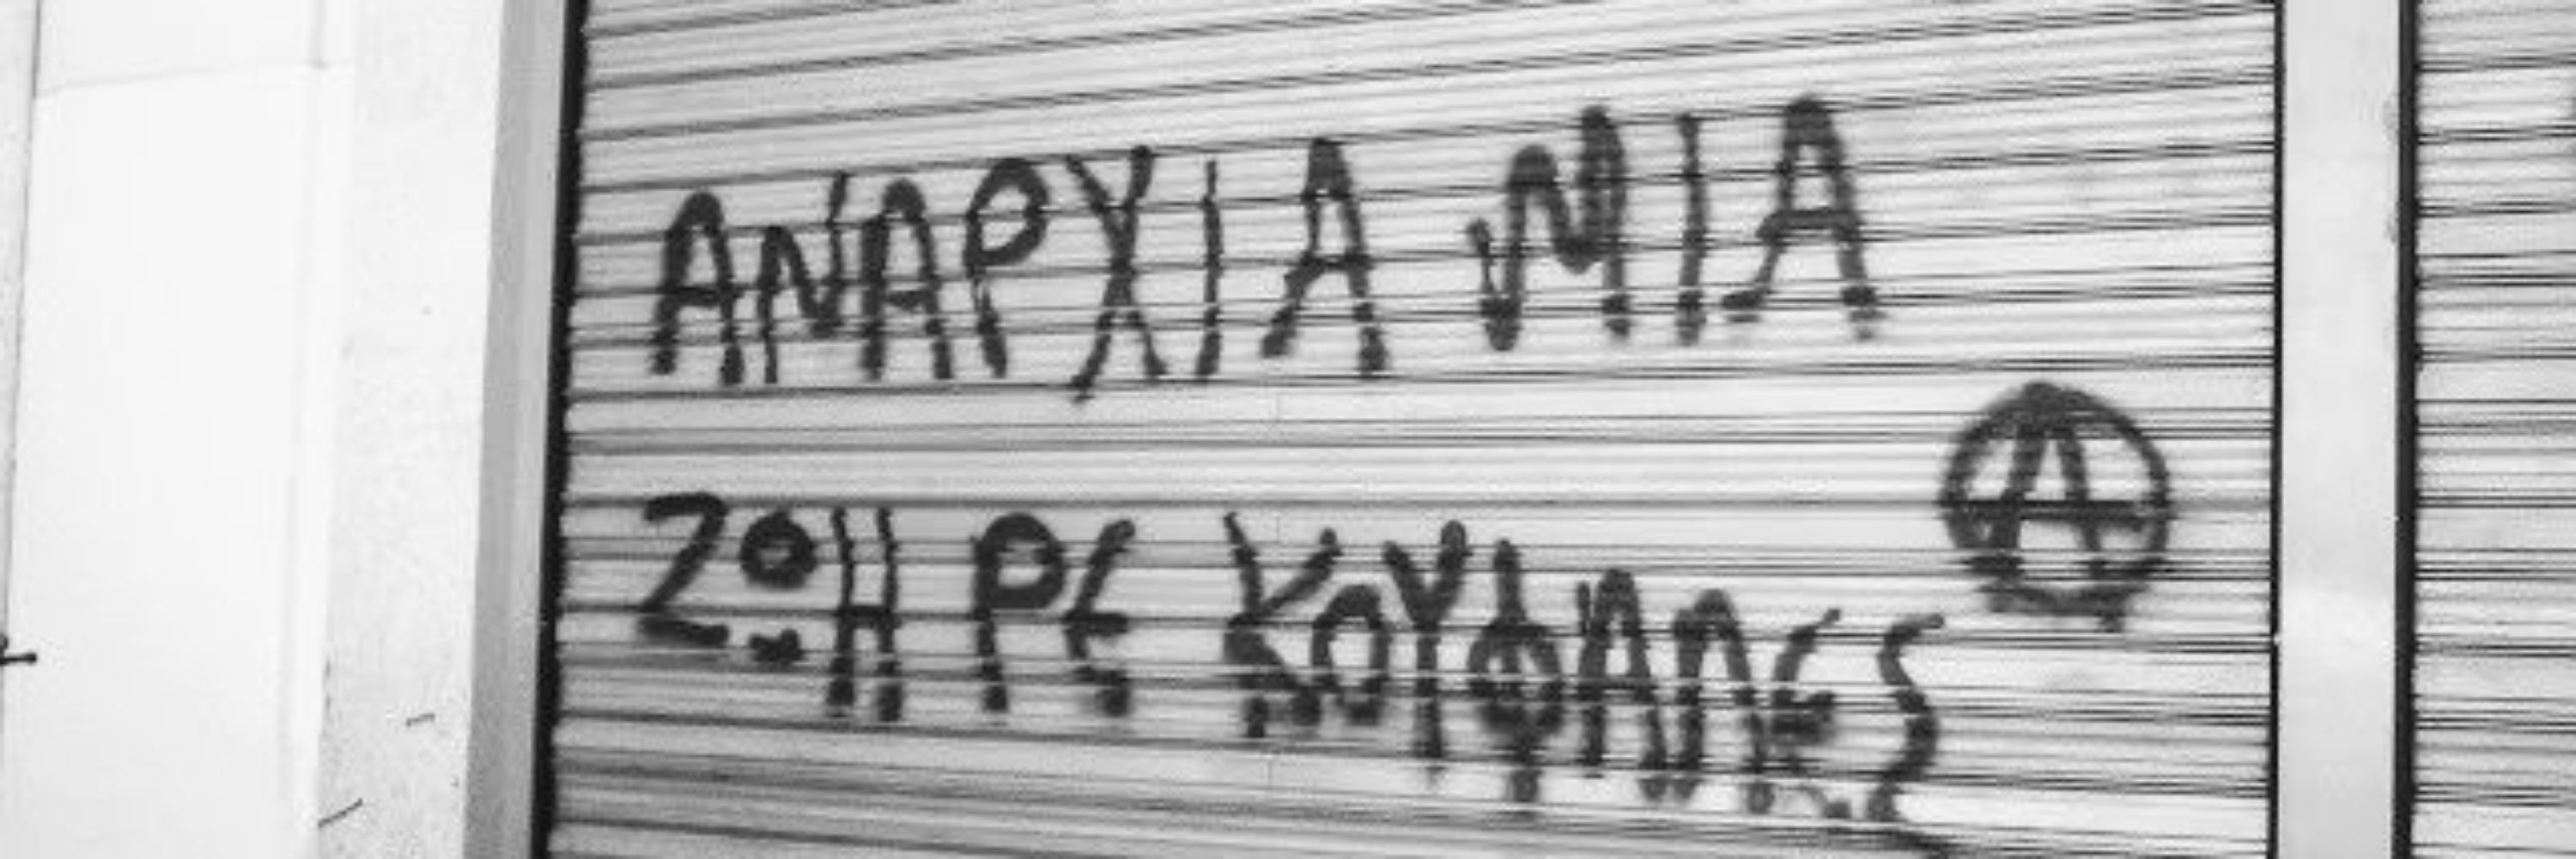 ΑΝΑΡΧΙΑ ΜΙΑ
Ⓐ
ΖΩΗ ΡΕ ΚΟΥΦΑΛΕS